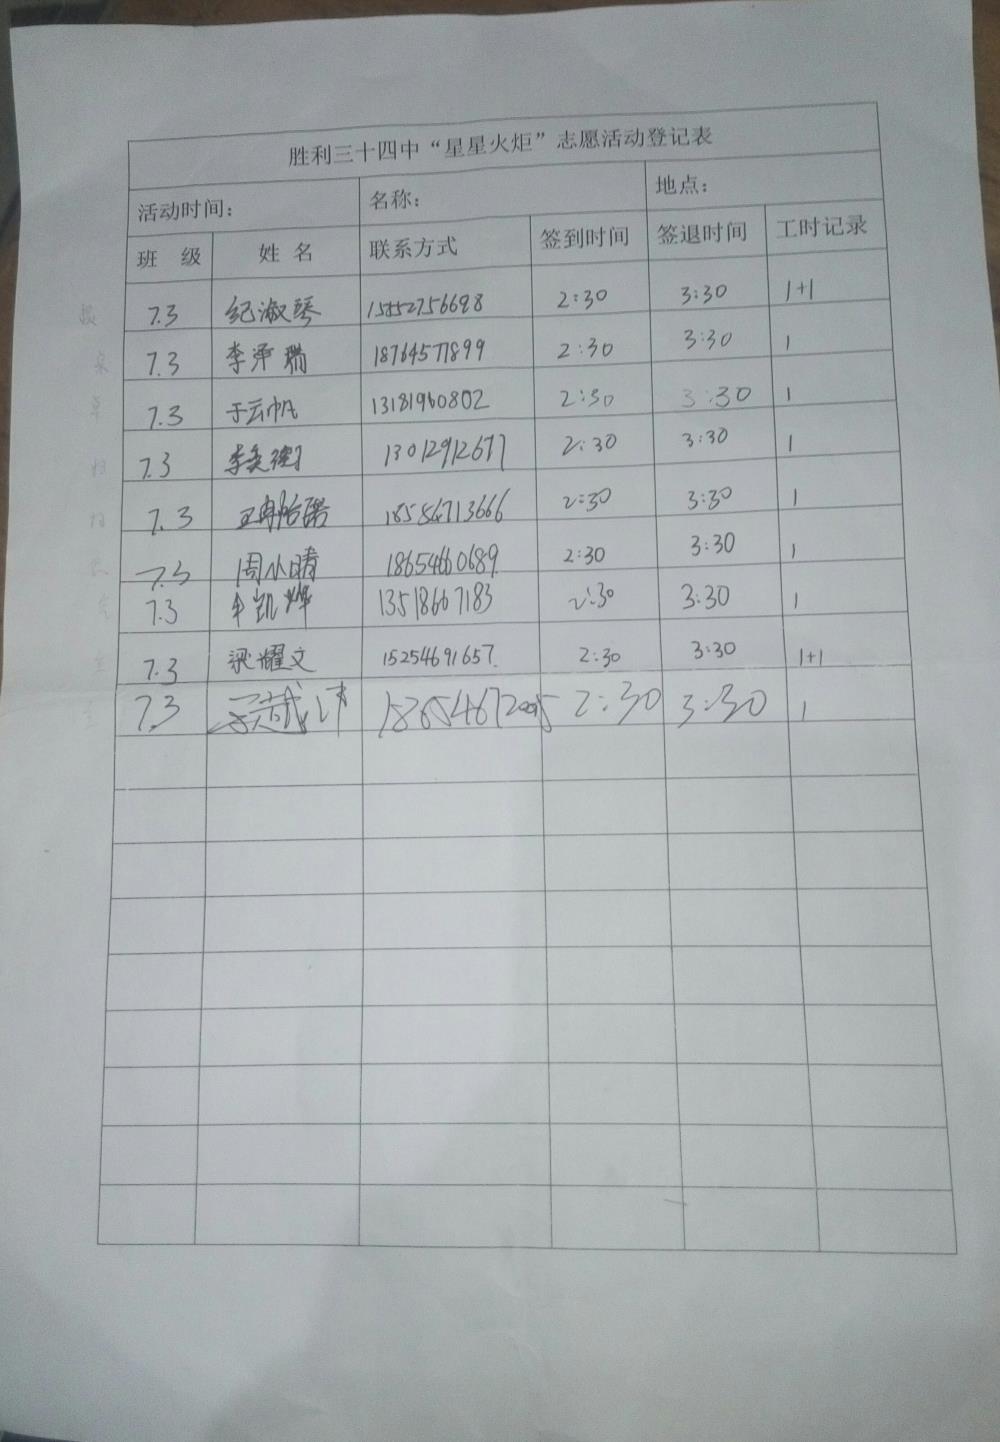 胜利三十四中“星星火炬”志愿活动登记表
活动时间： 名称： 地点：
班 级 姓 名 联系方式 签到时间 签退时间 工时记录
7.3 纪淑琴 15552756698 2:30 3:30 1+1
7.3 李泽瑞 18764577899 2:30 3:30 1
7.3 于云帆 13181960802 2:30 3:30 1
7.3 李奕 13012912677 2:30 3:30 1
7.3 王冉 18554713666 2:30 3:30 1
7.3 周小晴 18654660689 2:30 3:30 1
7.3 凯烨 13518667183 2:30 3:30 1
7.3 梁耀文 15254691657 2:30 3:30 1+1
7.3 2:30 3:30 1